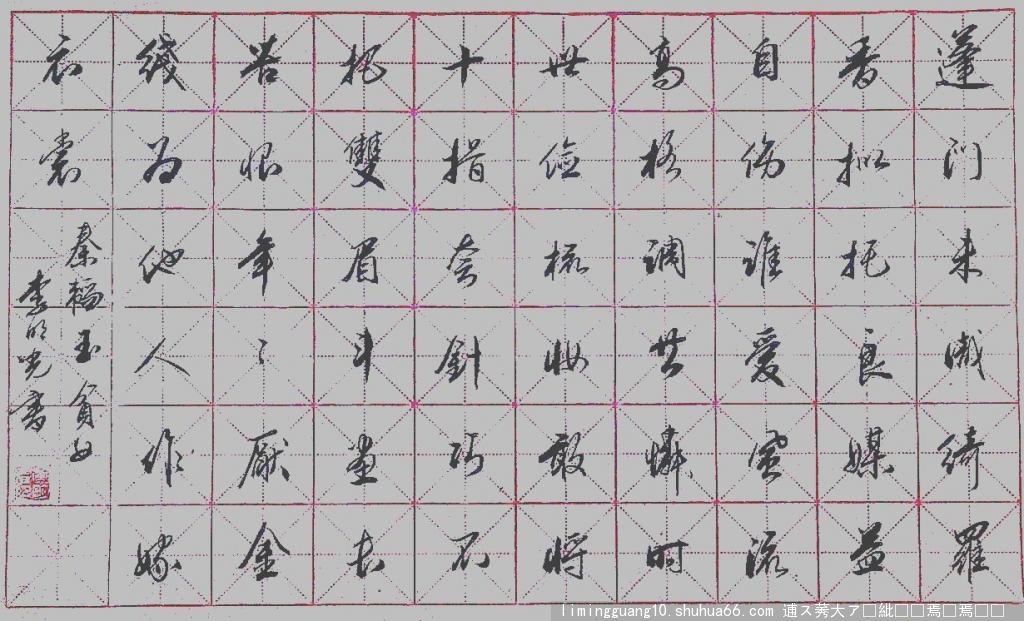 蓬门未識綺羅
香拟托良媒益
自伤誰愛風流
高格調共憐时
世儉梳妆敢将
十指夸針巧不
把雙眉斗畫长
苦恨年々厭金
线为他人作嫁
衣裳
秦韬玉貧女
李明光書
limingguang10.shuhua66.com